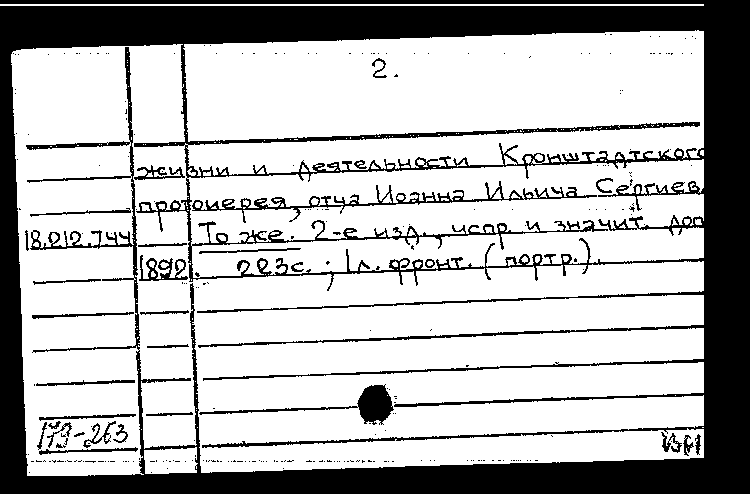 2.
жизни и деятельности Кронштадтского
протоиерея, отца Иоанна Ильича Сергиев.
18.212.744 То же. 2-е изд., испр. и значит. доп
1892. 223с.; 1л. фронт. (портр.).
179-263